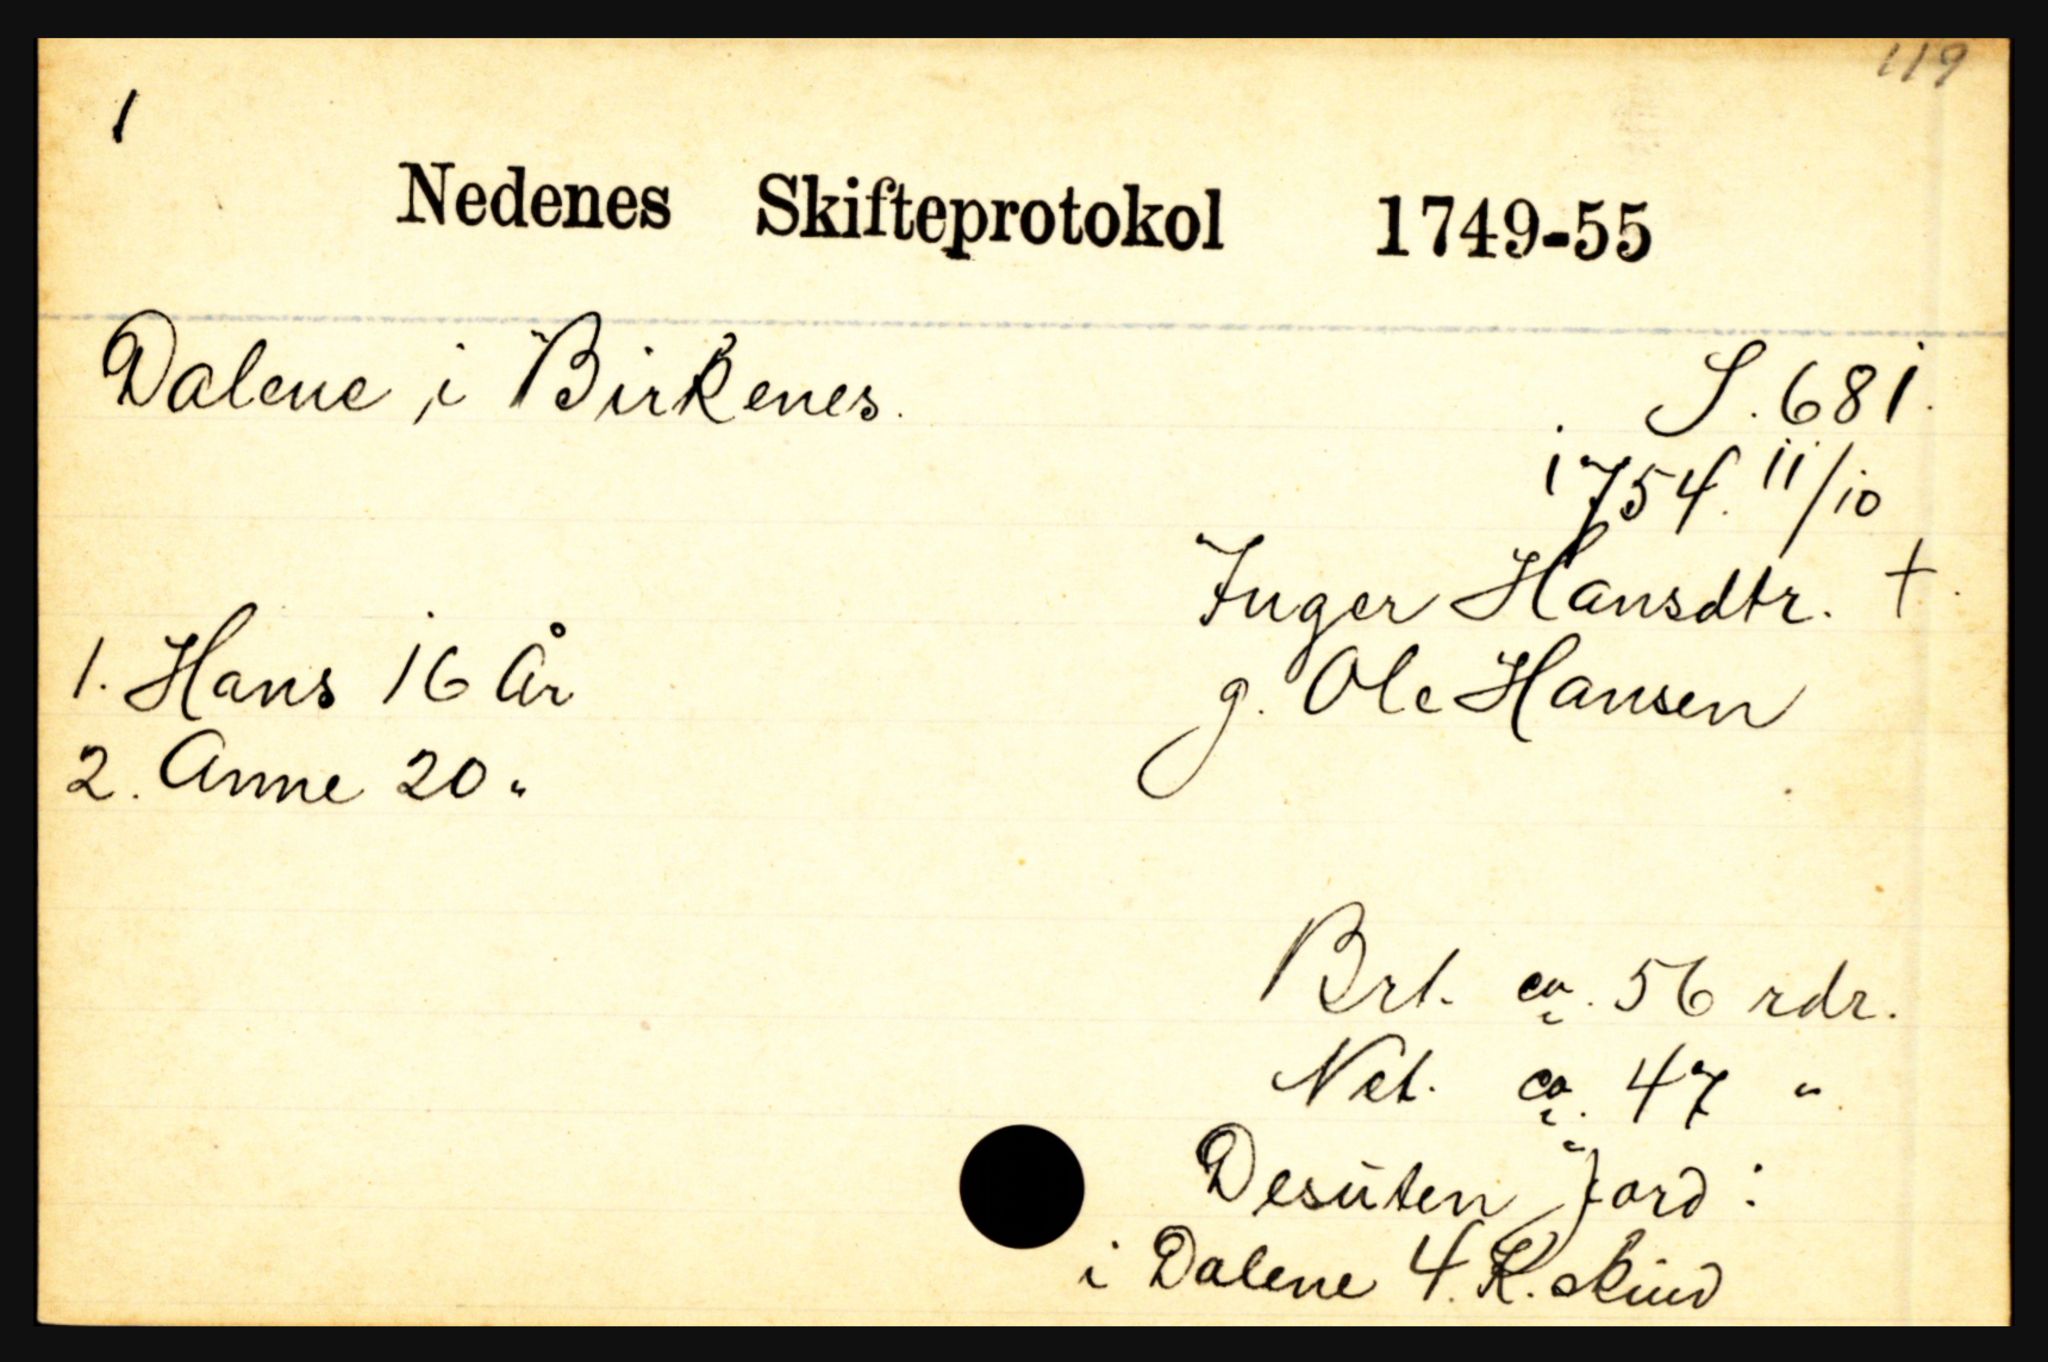 119
1
Nedenes Skifteprotokol 1749-55
Dalene i Birkenes.
S. 681.
1754. 11/10
Inger Hansdtr. †.
1. Hans 16 År
g. Ole Hansen
2. Anne 20 "
Brt. ca. 56 rdr.
Net. ca. 47 "
Desuten Jord:
i Dalene 4 K. skind